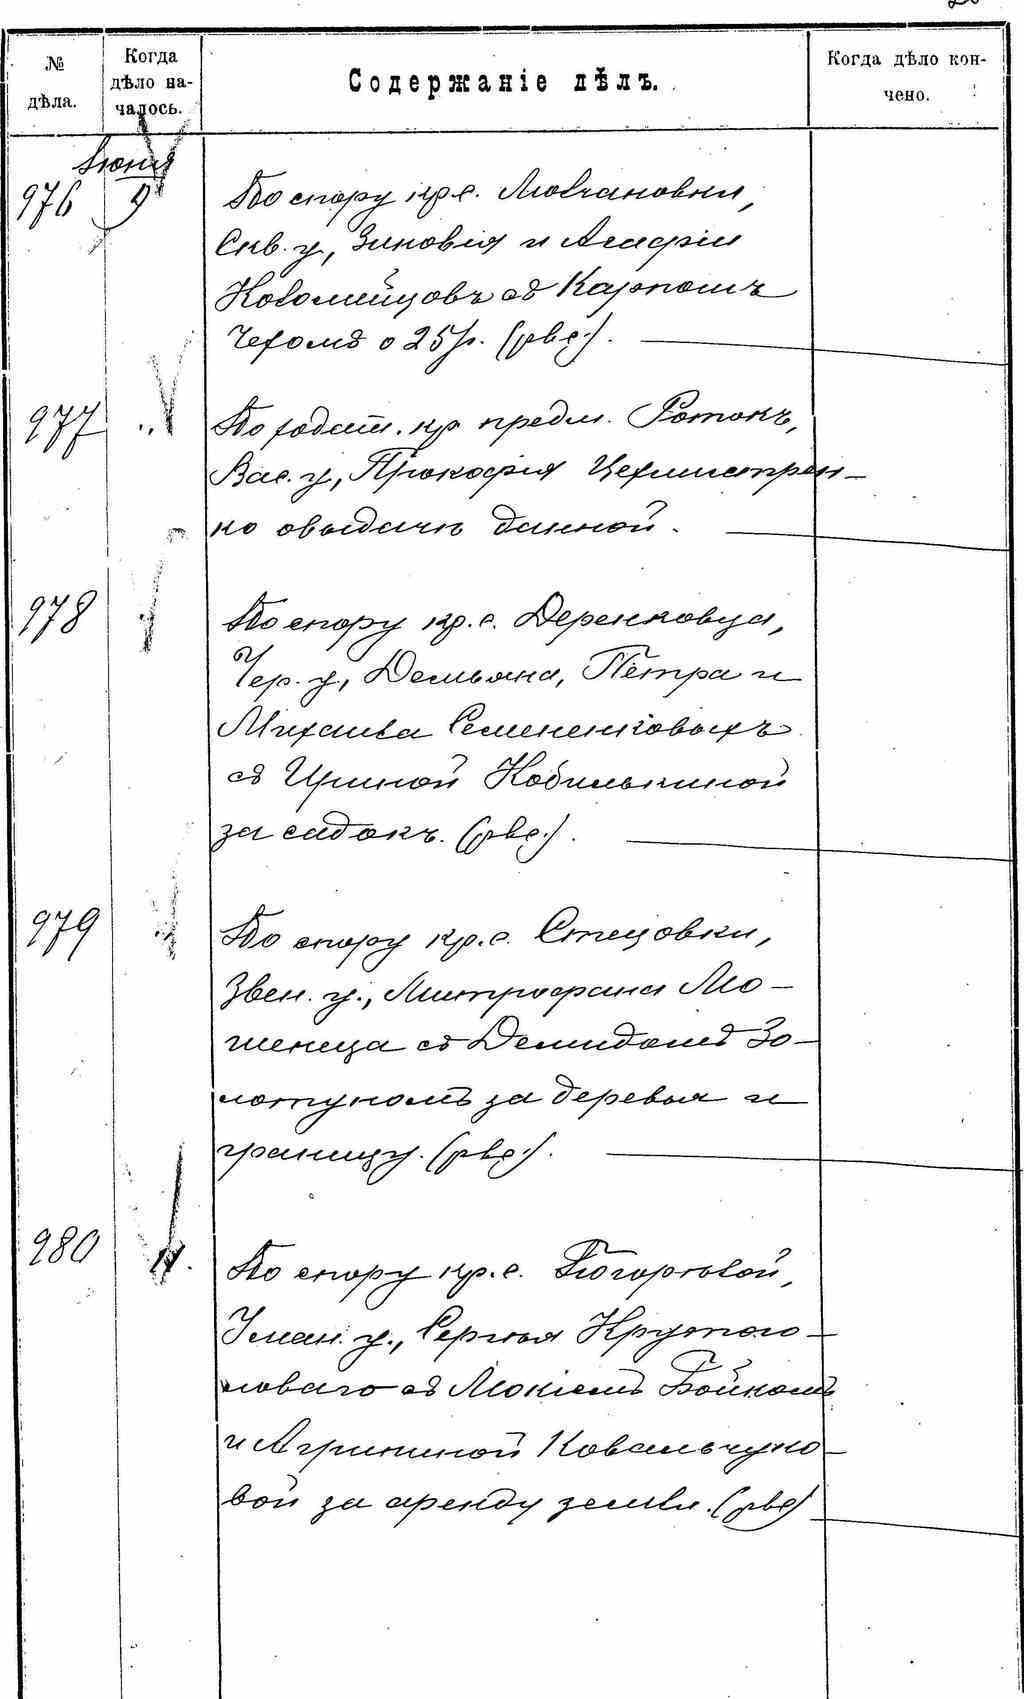 № дѣла.
Когда дѣло на-
чалось.
Содержаніе дѣлъ.
Когда дѣло кон-
чено.
Іюня
976 9 По спору кр. с. Молчановки,
Скв. у., Зиновія и Агафіи
Коломійцовъ съ Карпомъ
Чехомъ о 25 р. (рвс.).
977 " По ходат. кр. предм. Ротокъ,
Вас. у., Прокофія Цехмистрен-
ко о выдачѣ данной.
978 " По спору кр. с. Деренковца,
Чер. у., Демьяна, Петра и
Михаила Семененковыхъ
съ Ириной Кобилькиной
за садокъ. (рвс.).
979 " По спору кр. с. Стецовки,
Звен. у., Митрофана Мо-
шенца съ Демидомъ Зо-
лотуномъ за деревья и
границу. (рвс.).
980 11. По спору кр. с. Погорѣлой,
Уман. у., Сергѣя Крутого-
ловаго съ Мокіемъ Бойкомъ
и Агрипиной Ковальчуко-
вой за аренду земли. (рвс)